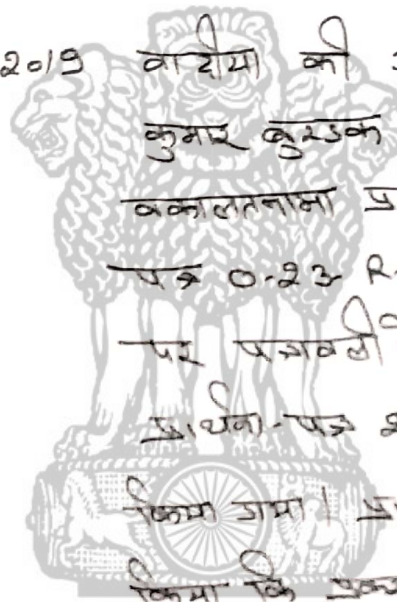 2019 वादीया की
कुमार बुरडक
वकालतनामा प्र
पत्र 0-23 R.
पर पत्रावली
प्रार्थना-पत्र
किया गया। प्र
किया कि